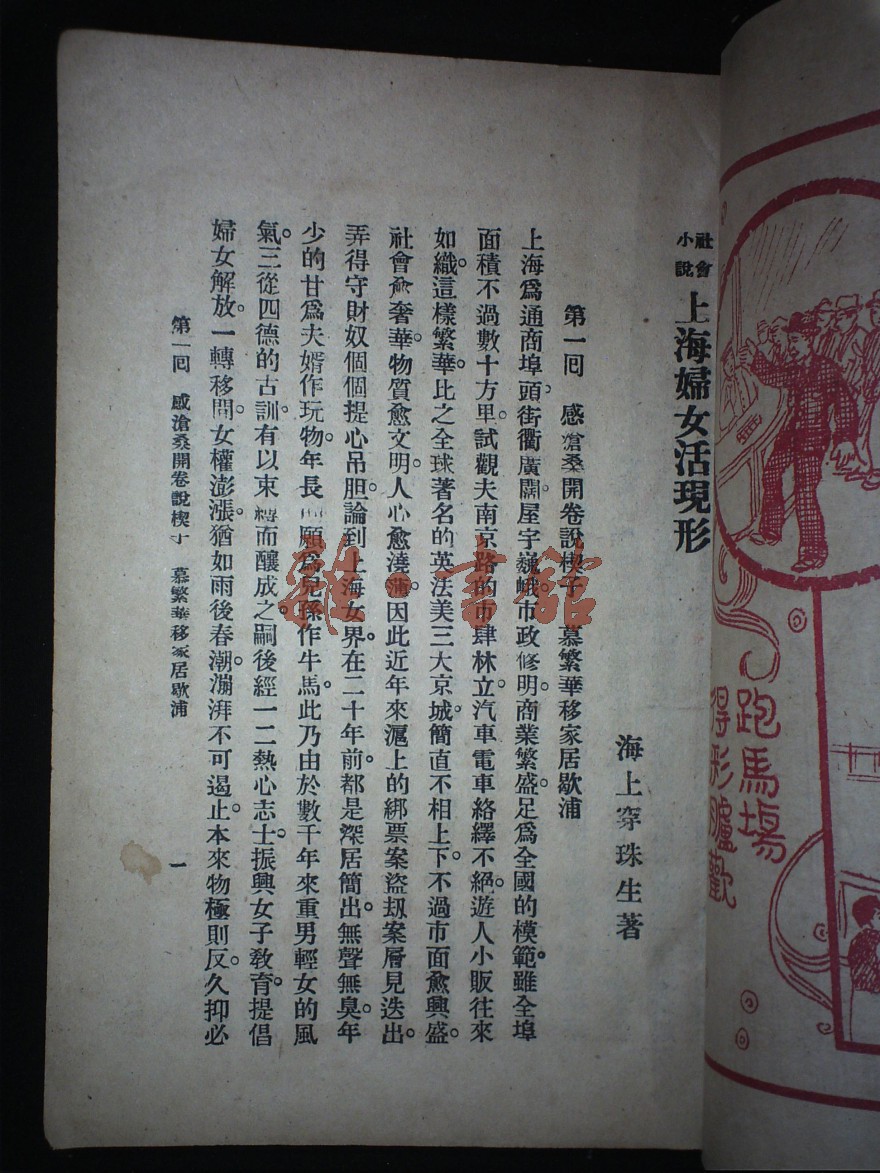 社會小說 上海婦女活現形
海上穿珠生著
第一回 感滄桑開卷說楔子 慕繁華移家居歇浦
上海爲通商埠頭。街衢廣闊。屋宇巍峨。市政修明。商業繁盛。足爲全國的模範。雖全埠
面積不過數十方里。試觀夫南京路的市肆林立。汽車電車絡繹不絕。遊人小販往來
如織。這樣繁華。比之全球著名的英法美三大京城。簡直不相上下。不過市面愈興盛。
社會愈奢華。物質愈文明。人心愈澆薄。因此近年來滬上的綁票案盜刼案層見迭出。
弄得守財奴個個提心吊胆。論到上海女界。在二十年前。都是深居簡出。無聲無臭。年
少的甘爲夫婿作玩物。年長願爲兒孫作牛馬。此乃由於數千年來重男輕女的風
氣。三從四德的古訓。有以束縛而釀成之。嗣後經一二熱心志士。振興女子教育。提倡
婦女解放。一轉移間。女權澎漲。猶如雨後春潮。漰湃不可遏止。本來物極則反。久抑必
第一回 感滄桑開卷說楔子 慕繁華移家居歇浦
一
跑馬塲
得彩開臚歡
雜·書館